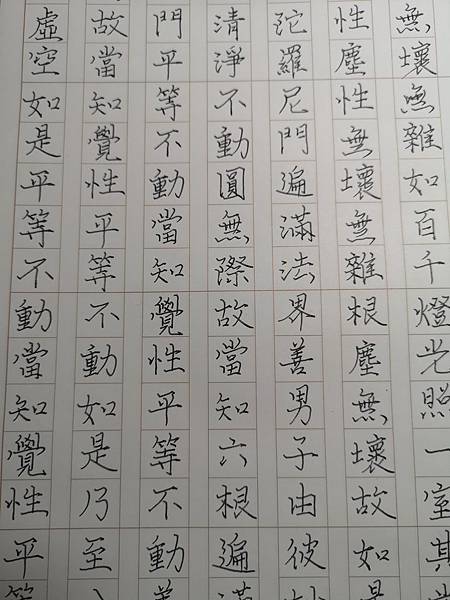 無壞無雜如百千燈光照一室其光
性塵性無壞無雜根塵無壞故如是
陀羅尼門遍滿法界善男子由彼妙
清淨不動圓無際故當知六根遍滿
門平等不動當知覺性平等不動善
故當知覺性平等不動如是乃至八
虛空如是平等不動當知覺性平等